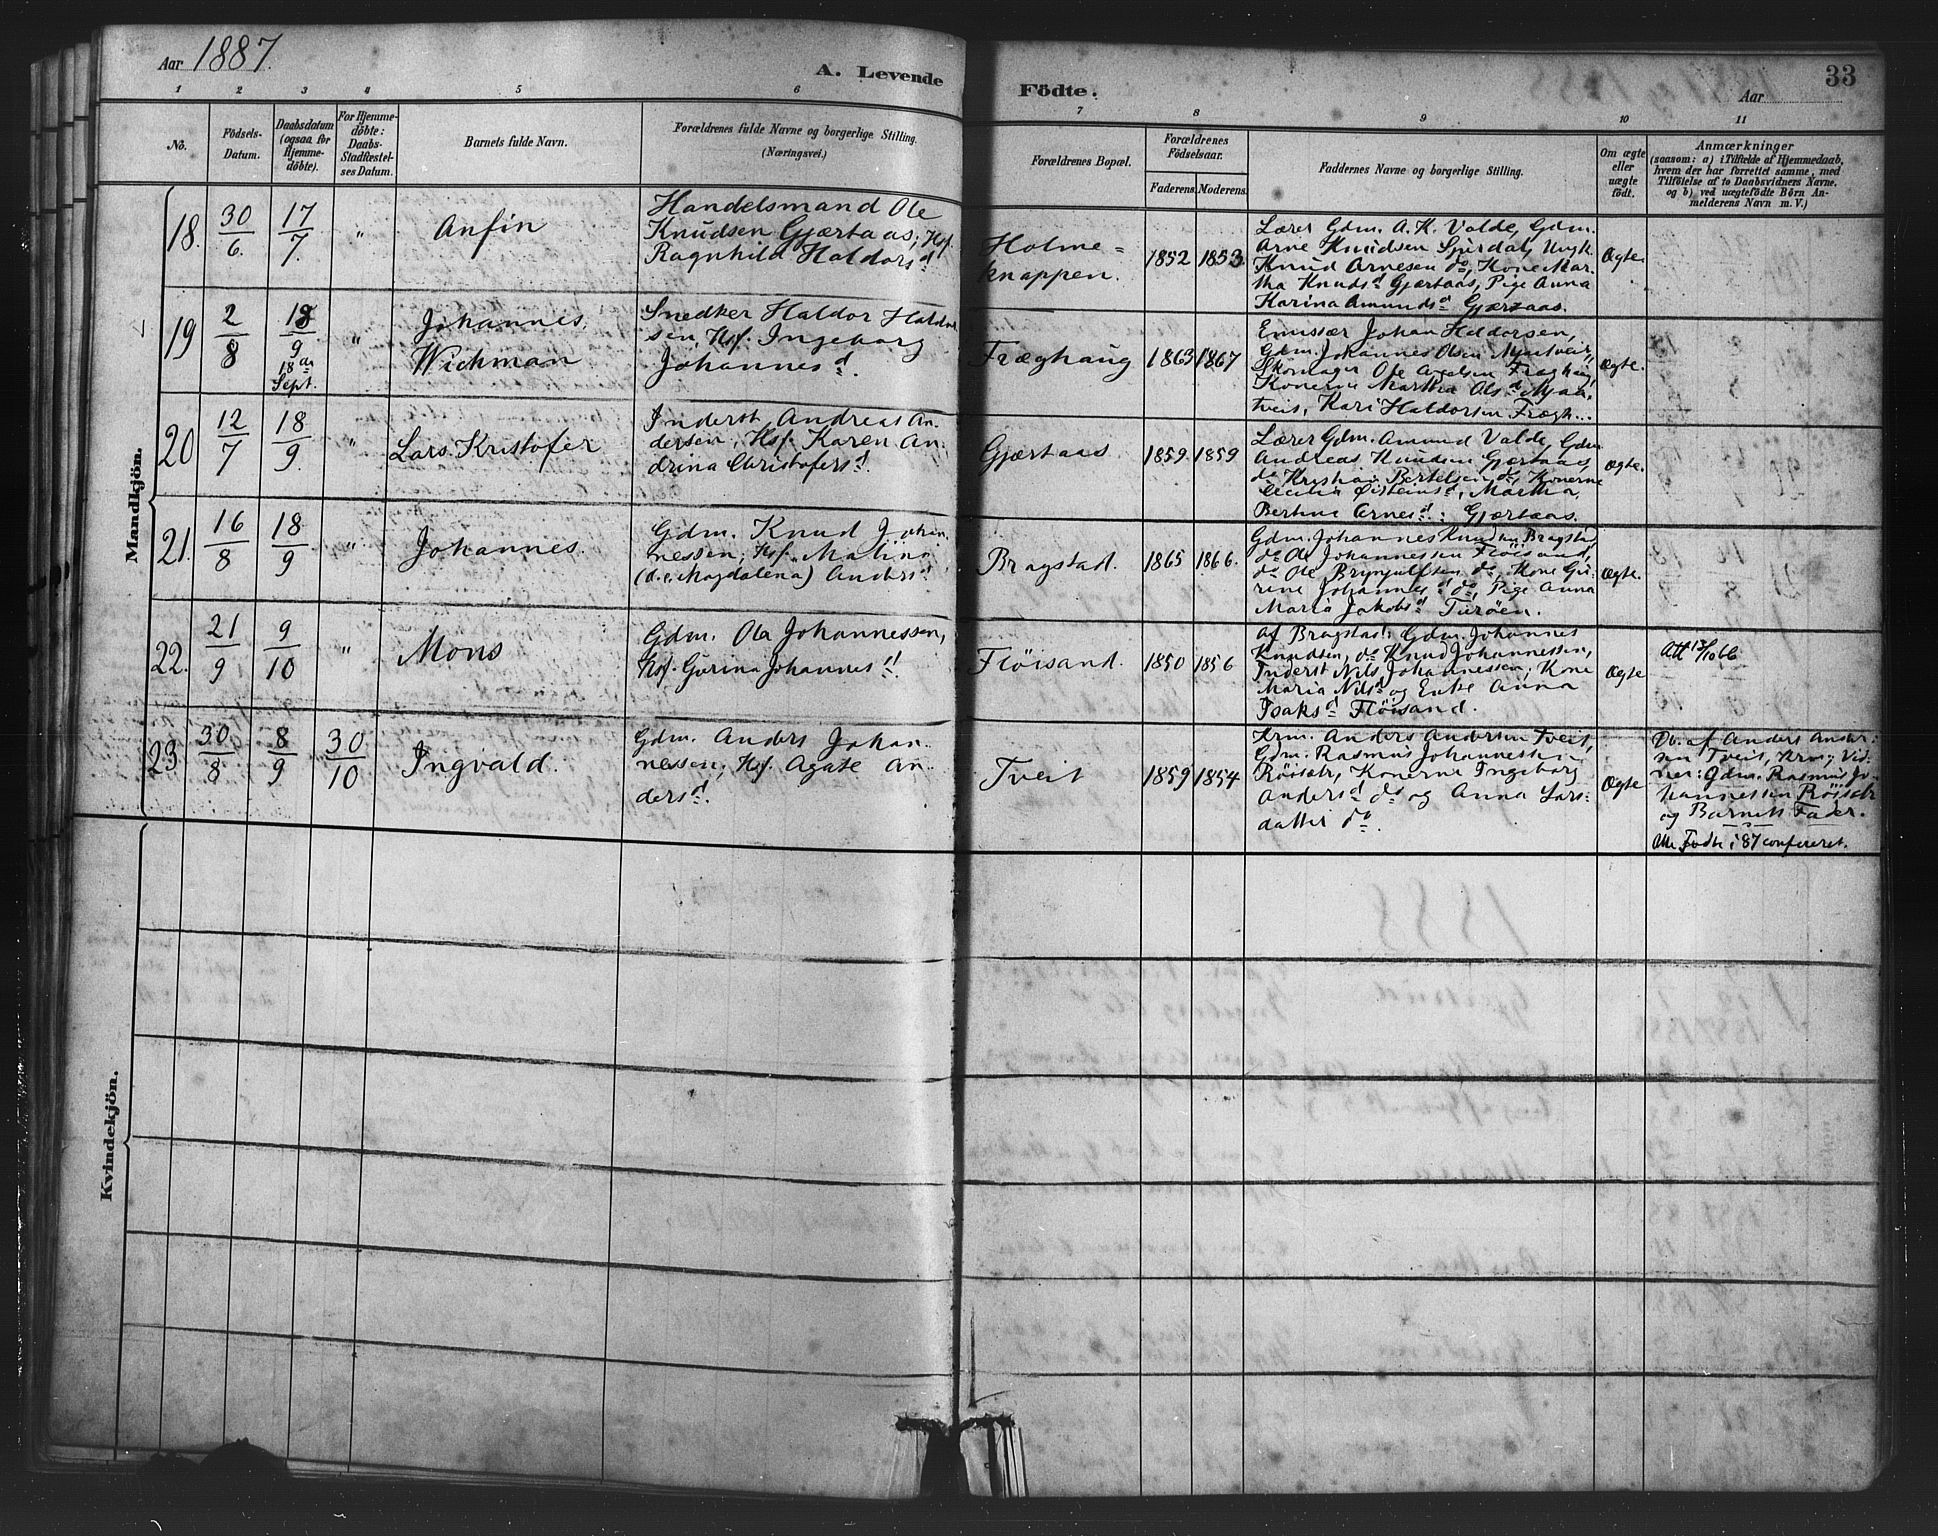 Aar 1887.
A. Levende
Födte.
33
Aar
1 2 3 4 5 6 7 8 9 10 11
No.
Födsels-
Datum.
Daabsdatum
(ogsaa for
Hjemme-
döbte).
For Hjemme-
döbte:
Daabs-
Stadfæstel-
ses Datum.
Barnets fulde Navn.
Forældrenes fulde Navne og borgerlige Stilling.
(Næringsvei.)
Forældrenes Bopæl.
Forældrenes
Födselsaar.
Faderens.
Moderens.
Faddernes Navne og borgerlige Stilling.
Om ægte
eller
uægte
födt.
Anmærkninger
(saasom: a) i Tilfælde af Hjemmedaab,
hvem der har forrettet samme, med
Tilföielse af to Daabsvidners Navne.
og b) ved uægtefödte Börn An-
melderens Navn m. V.)
Mandkjön.
18. 30/6. 17/7. " Anfin
Handelsmand Ole
Knudsen Gjærtaas, Hsf.
Ragnhild Haldorsd
Holme=
knappen.
1852 1853.
Lærer Gdm. A. K. Valde, Gdm.
Arne Knudsen Spirdal, Ungk.
Knud Arnesen do, Kone Mar-
tha Knudsd Gjærtaas, Pige Anna
Karina Amundsd Gjærtaas.
Ægte.
19 2/8 18/9
18de
Sept.
" Johannes
Wichman
Snedker Haldor Haldor
sen, Hsf. Ingeborg
Johannesd.
Fræghaug 1863 1867
Emissær Johan Haldorsen,
Gdm. Johannes Olsen Mjaatveit,
Skomager Ole Axelsen Fræghaug,
Konerne Martha Olsd Mjaa-
tveit, Kari Haldorsen Frægh...
Ægte.
20 12/7 18/9. " Lars Kristofer
Inderst Andreas An-
dersen, Hsf. Karen An-
drina Christofersd.
Gjærtaas 1859. 1859
Lærer Gdm. Amund Valde, Gdm
Andreas Knudsen Gjærtaas,
do Krystian Bertelsen do, Konerne
Cecilia Øisteinsd, Martha,
Bertine Arnesd: Gjærtaas.
Ægte.
21. 16/8 18/9 " Johannes.
Gdm. Knud Johan-
nessen, Hsf. Malina
(d.e. Magdalena) Andersd
Bragstad. 1865 1866.
Gdm. Johannes Knudsen Bragstad
do Ole Johannessen Flöisand,
do Ole Brynjulfsen do, Kone Gu-
rine Johannesd do, Pige Anna
Maria Jakobsd Turöen.
Ægte.
22. 21/9 9/10 " Mons
Gdm. Ole Johannessen,
Hsf. Gurina Johannesd.
Flöisand. 1850 1856
Af Bragstad: Gdm. Johannes
Knudsen, do Knud Johannessen,
Inderst Nils Johannessen, Kone
Maria Nilsd og Enke Anna
Isaksd Flöisand.
Ægte
Att 13/10 66
23 30/8 8/9 30/10 Ingvald.
Gdm. Anders Johan-
nessen, Hsf. Agate An-
dersd.
Tveit 1859 1854
Krm. Anders Andersen Tveit,
Gdm. Rasmus Johannessen
Röisetr, Konerne Ingeborg
Andersd do og Anna Lars-
datter do.
Ægte
Db. af Anders Ander-
sen Tveit, Krm; Vid-
ner: Gdm. Rasmus Jo-
hannessen Röisetr
og Barnets Fader.
Alle Födte i 87 confereret.
Kvindekjön.